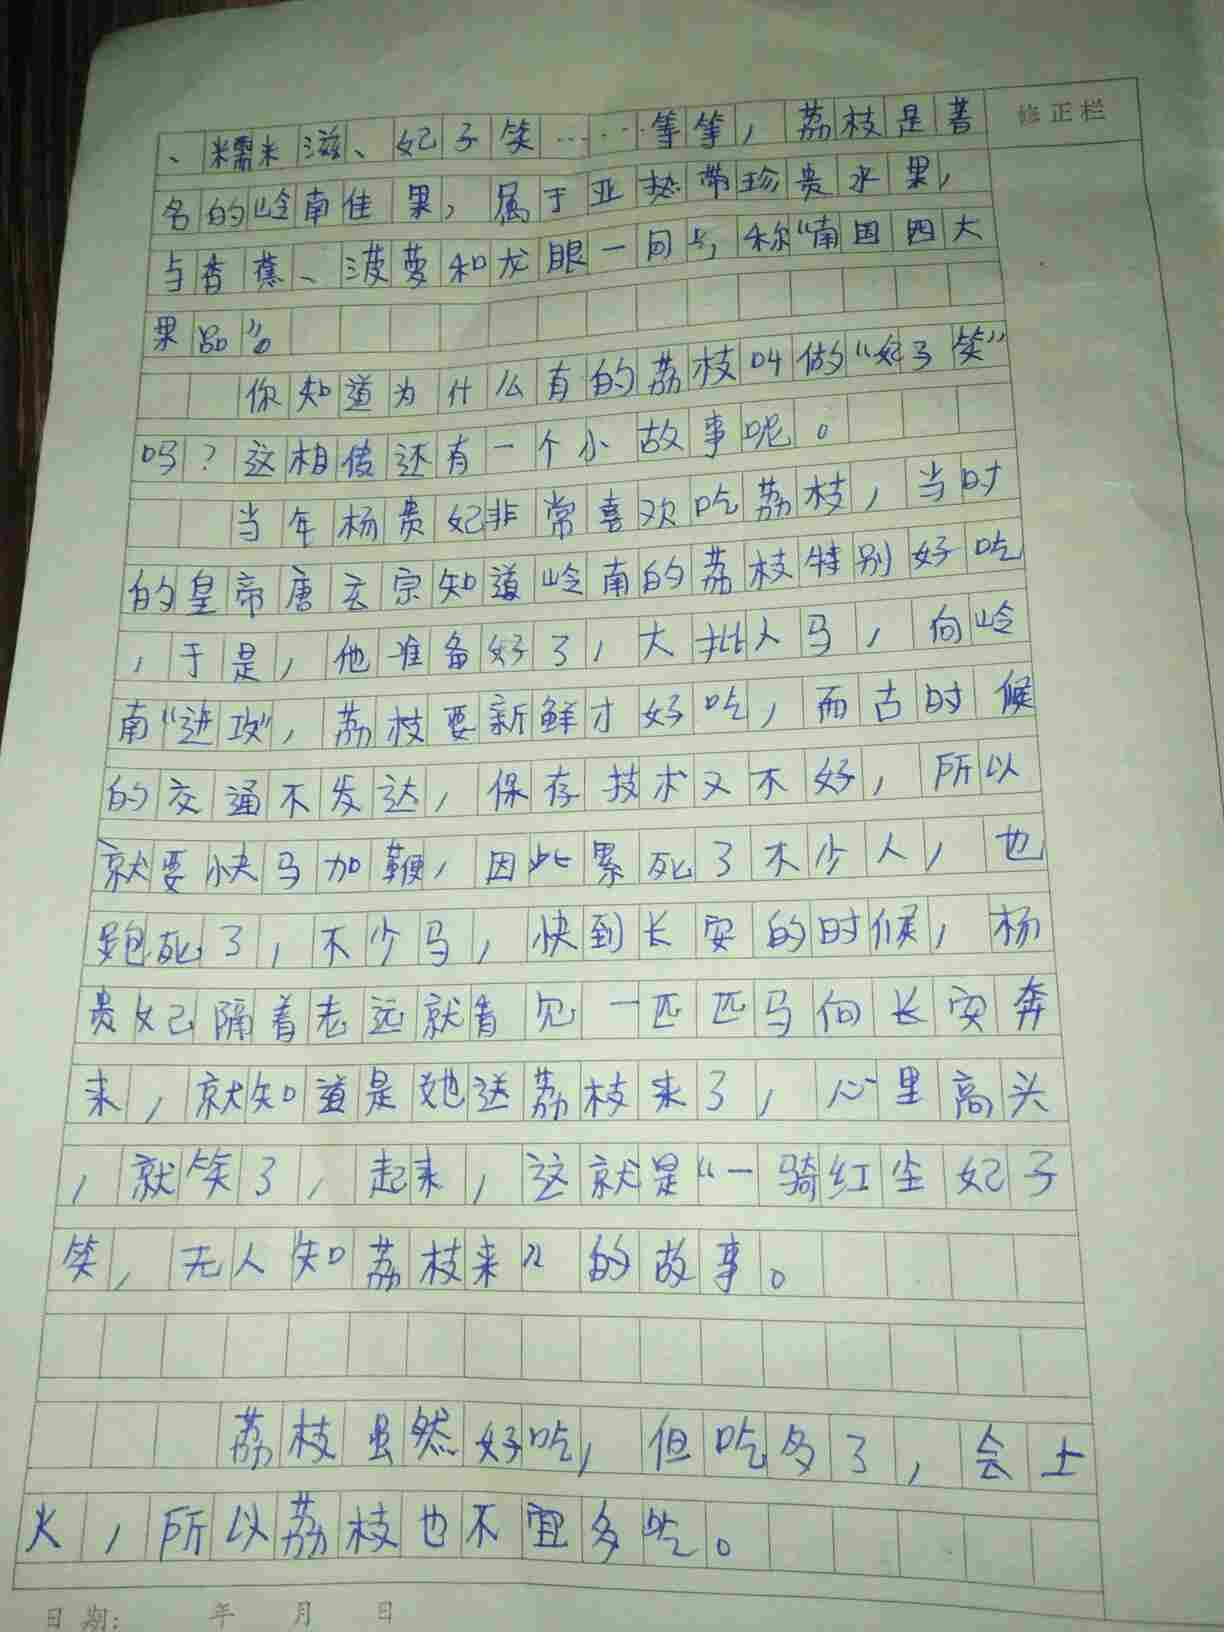 修正栏
、糯米滋、妃子笑……等等，荔枝是著
名的岭南佳果，属于亚热带珍贵水果，
与香蕉、菠萝和龙眼一同号称“南国四大
果品”。
你知道为什么有的荔枝叫做“妃子笑”
吗？这相传还有一个小故事呢。
当年杨贵妃非常喜欢吃荔枝，当时
的皇帝唐玄宗知道岭南的荔枝特别好吃
，于是，他准备好了，大批人马，向岭
南“进攻”，荔枝要新鲜才好吃，而古时候
的交通不发达，保存技术又不好，所以
就要快马加鞭，因此累死了不少人，也
跑死了，不少马，快到长安的时候，杨
贵妃隔着老远就看见一匹匹马向长安奔
来，就知道是她送荔枝来了，心里高头
，就笑了，起来，这就是“一骑红尘妃子
笑，无人知荔枝来”的故事。
荔枝虽然好吃，但吃多了，会上
火，所以荔枝也不宜多吃。
日期： 年 月 日